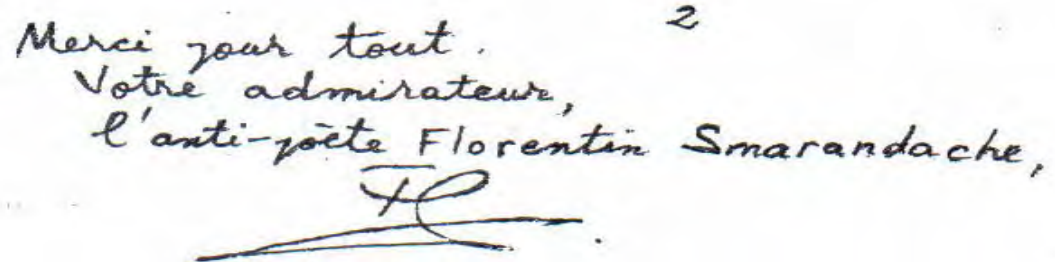 2
Merci pour tout.
Votre admirateur,
l'anti-poète Florentin Smarandache,